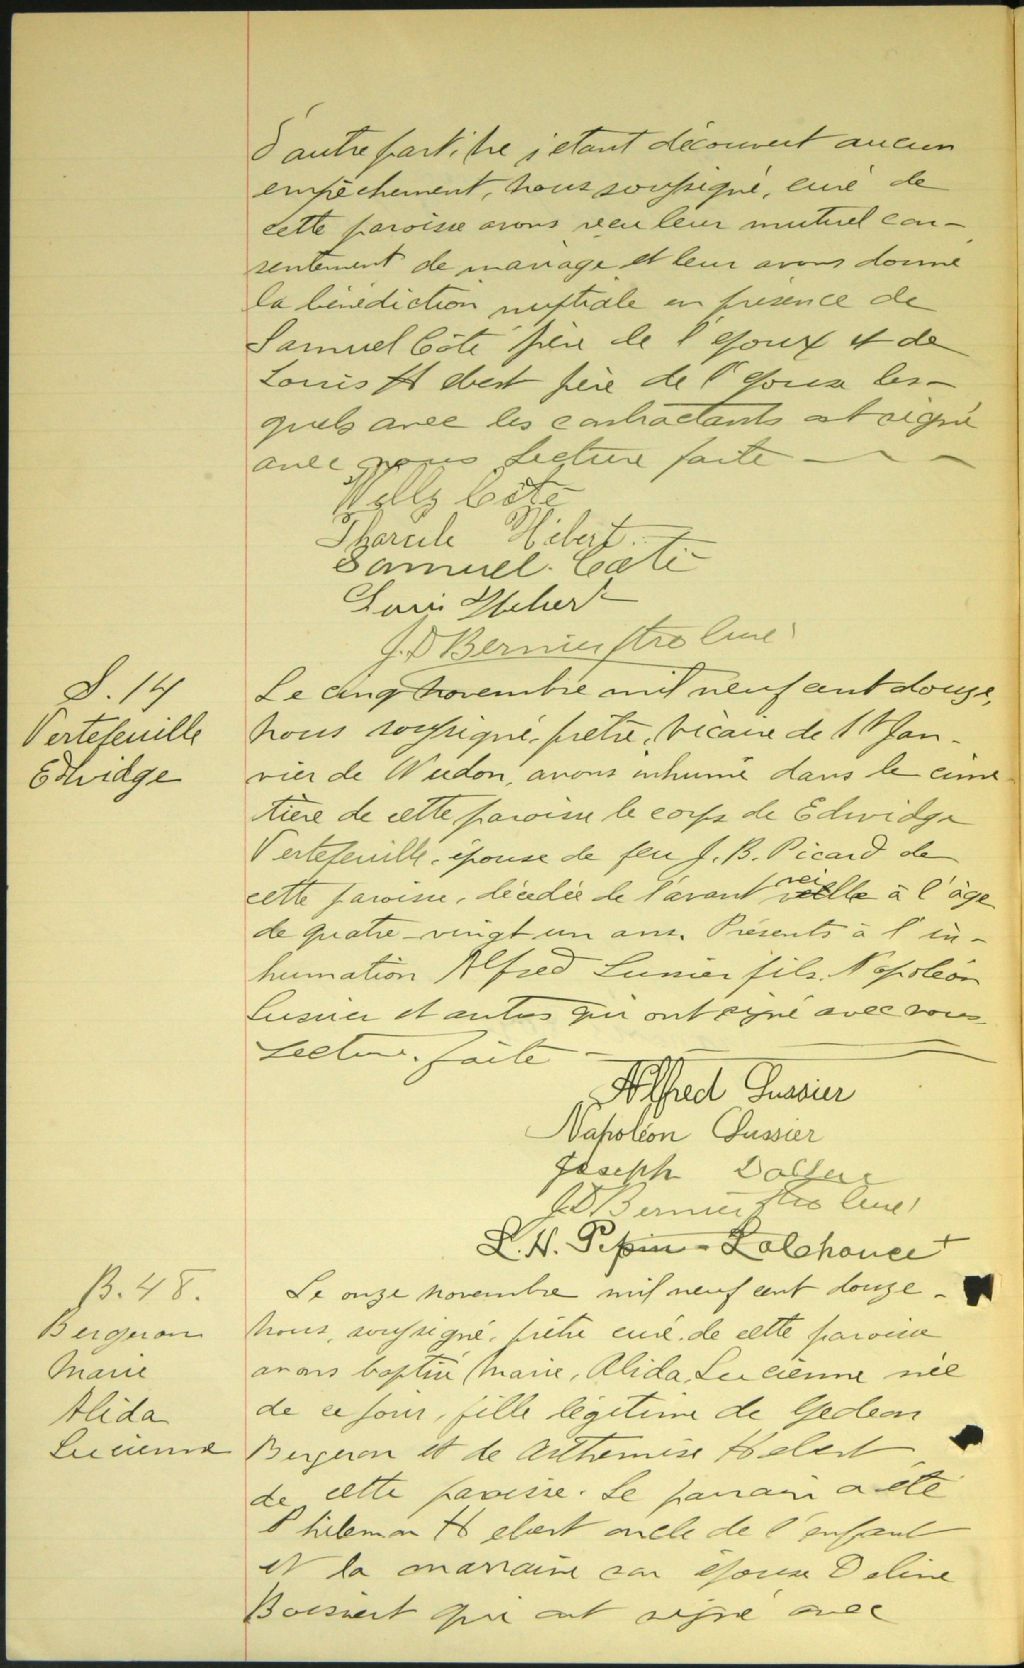 d'autre part; ne s'étant découvert aucun
empêchement, nous soussigné, curé de
cette paroisse avons reçu leur mutuel con-
sentement de mariage et leur avons donné
la bénédiction nuptiale en présence de
Samuel Côté père de l'époux et de
Louis Hébert père de l'épouse les-
quels avec les contractants ont signé
avec nous Lecture faite
Willy Côté
Tharcile Hébert
Samuel Coté
Louis Hébert
J. D Bernier ptre Curé
S. 14
Vertefeuille
Edwidge
Le cinq novembre mil neuf cent douze,
nous soussigné, prêtre, vicaire de St Jan-
vier de Weedon, avons inhumé dans le cime-
tière de cette paroisse le corps de Edwidge
Vertefeuille, épouse de feu J. B. Picard de
cette paroisse, décédée de l'avant veille à l'âge
de quatre-vingt un ans. Présents à l'in-
humation Alfred Lussier fils. Napoléon
Lussier et autres qui ont signé avec nous
Lecture faite
Alfred Lussier
Napoléon Lussier
Joseph
J. D Bernier ptre Curé
L. H. Pepin-Lalchance
B. 48.
Bergeron
Marie
Alida
Lucienne
Le onze novembre mil neuf cent douze
nous, soussigné, prêtre curé de cette paroisse
avons baptisé Marie, Alida, Lucienne née
de ce jour, fille légitime de Gedeon
Bergeron et de Arthemise Hebert
de cette paroisse. Le parrain a été
Philemon Hebert oncle de l'enfant
et la marraine son épouse Deline
Boisvert qui ont signé avec